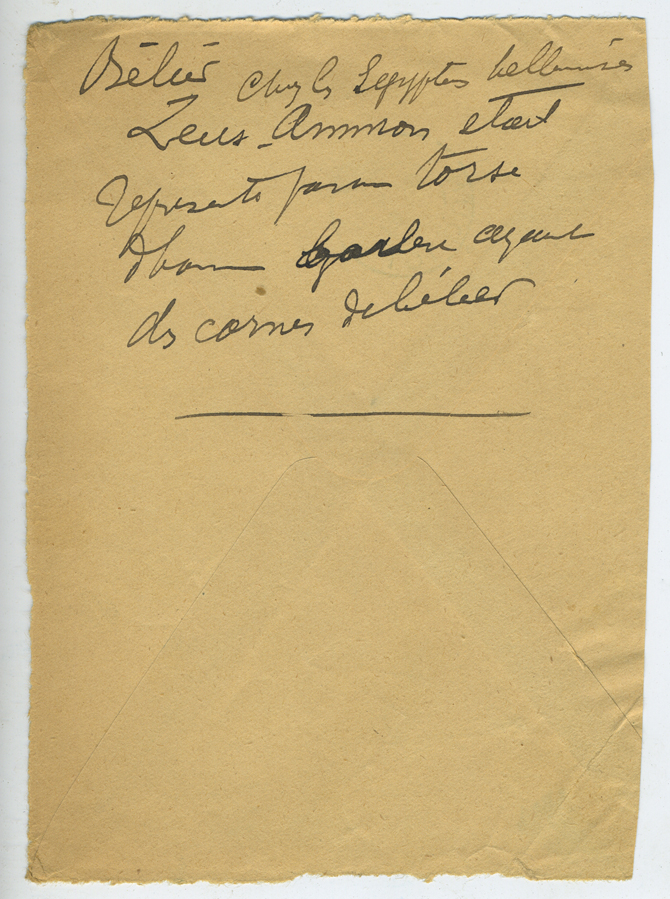 Bélier chez les Egyptes hellenisés
Zeus-Ammon etait
represente par un torse
d'homme barbu ayant
des cornes de bélier